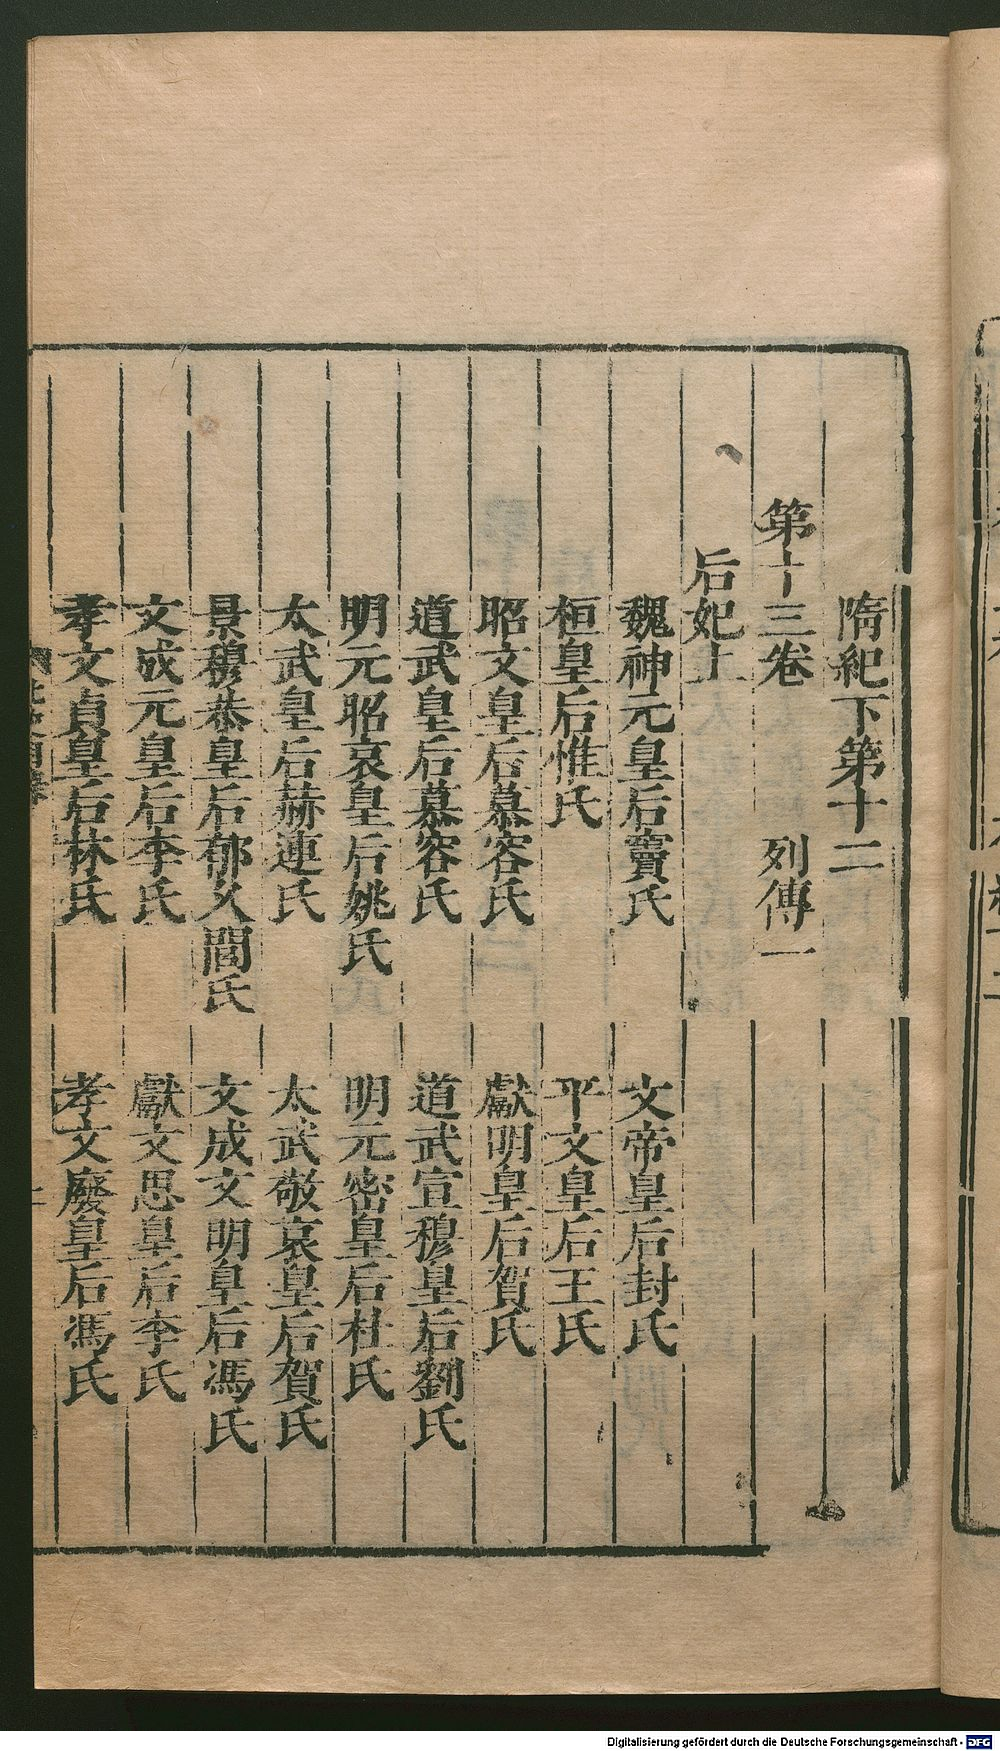 隋紀下第十二
第十三卷　列傳一
后妃上
魏神元皇后竇氏　文帝皇后封氏
桓皇后惟氏　平文皇后王氏
昭文皇后慕容氏　獻明皇后賀氏
道武皇后慕容氏　道武宣穆皇后劉氏
明元昭哀皇后姚氏　明元密皇后杜氏
太武皇后赫連氏　太武敬哀皇后賀氏
景穆恭皇后郁久閭氏　文成文明皇后馮氏
文成元皇后李氏　獻文思皇后李氏
孝文貞皇后林氏　孝文廢皇后馮氏
Digitalisierung gefördert durch die Deutsche Forschungsgemeinschaft - DFG